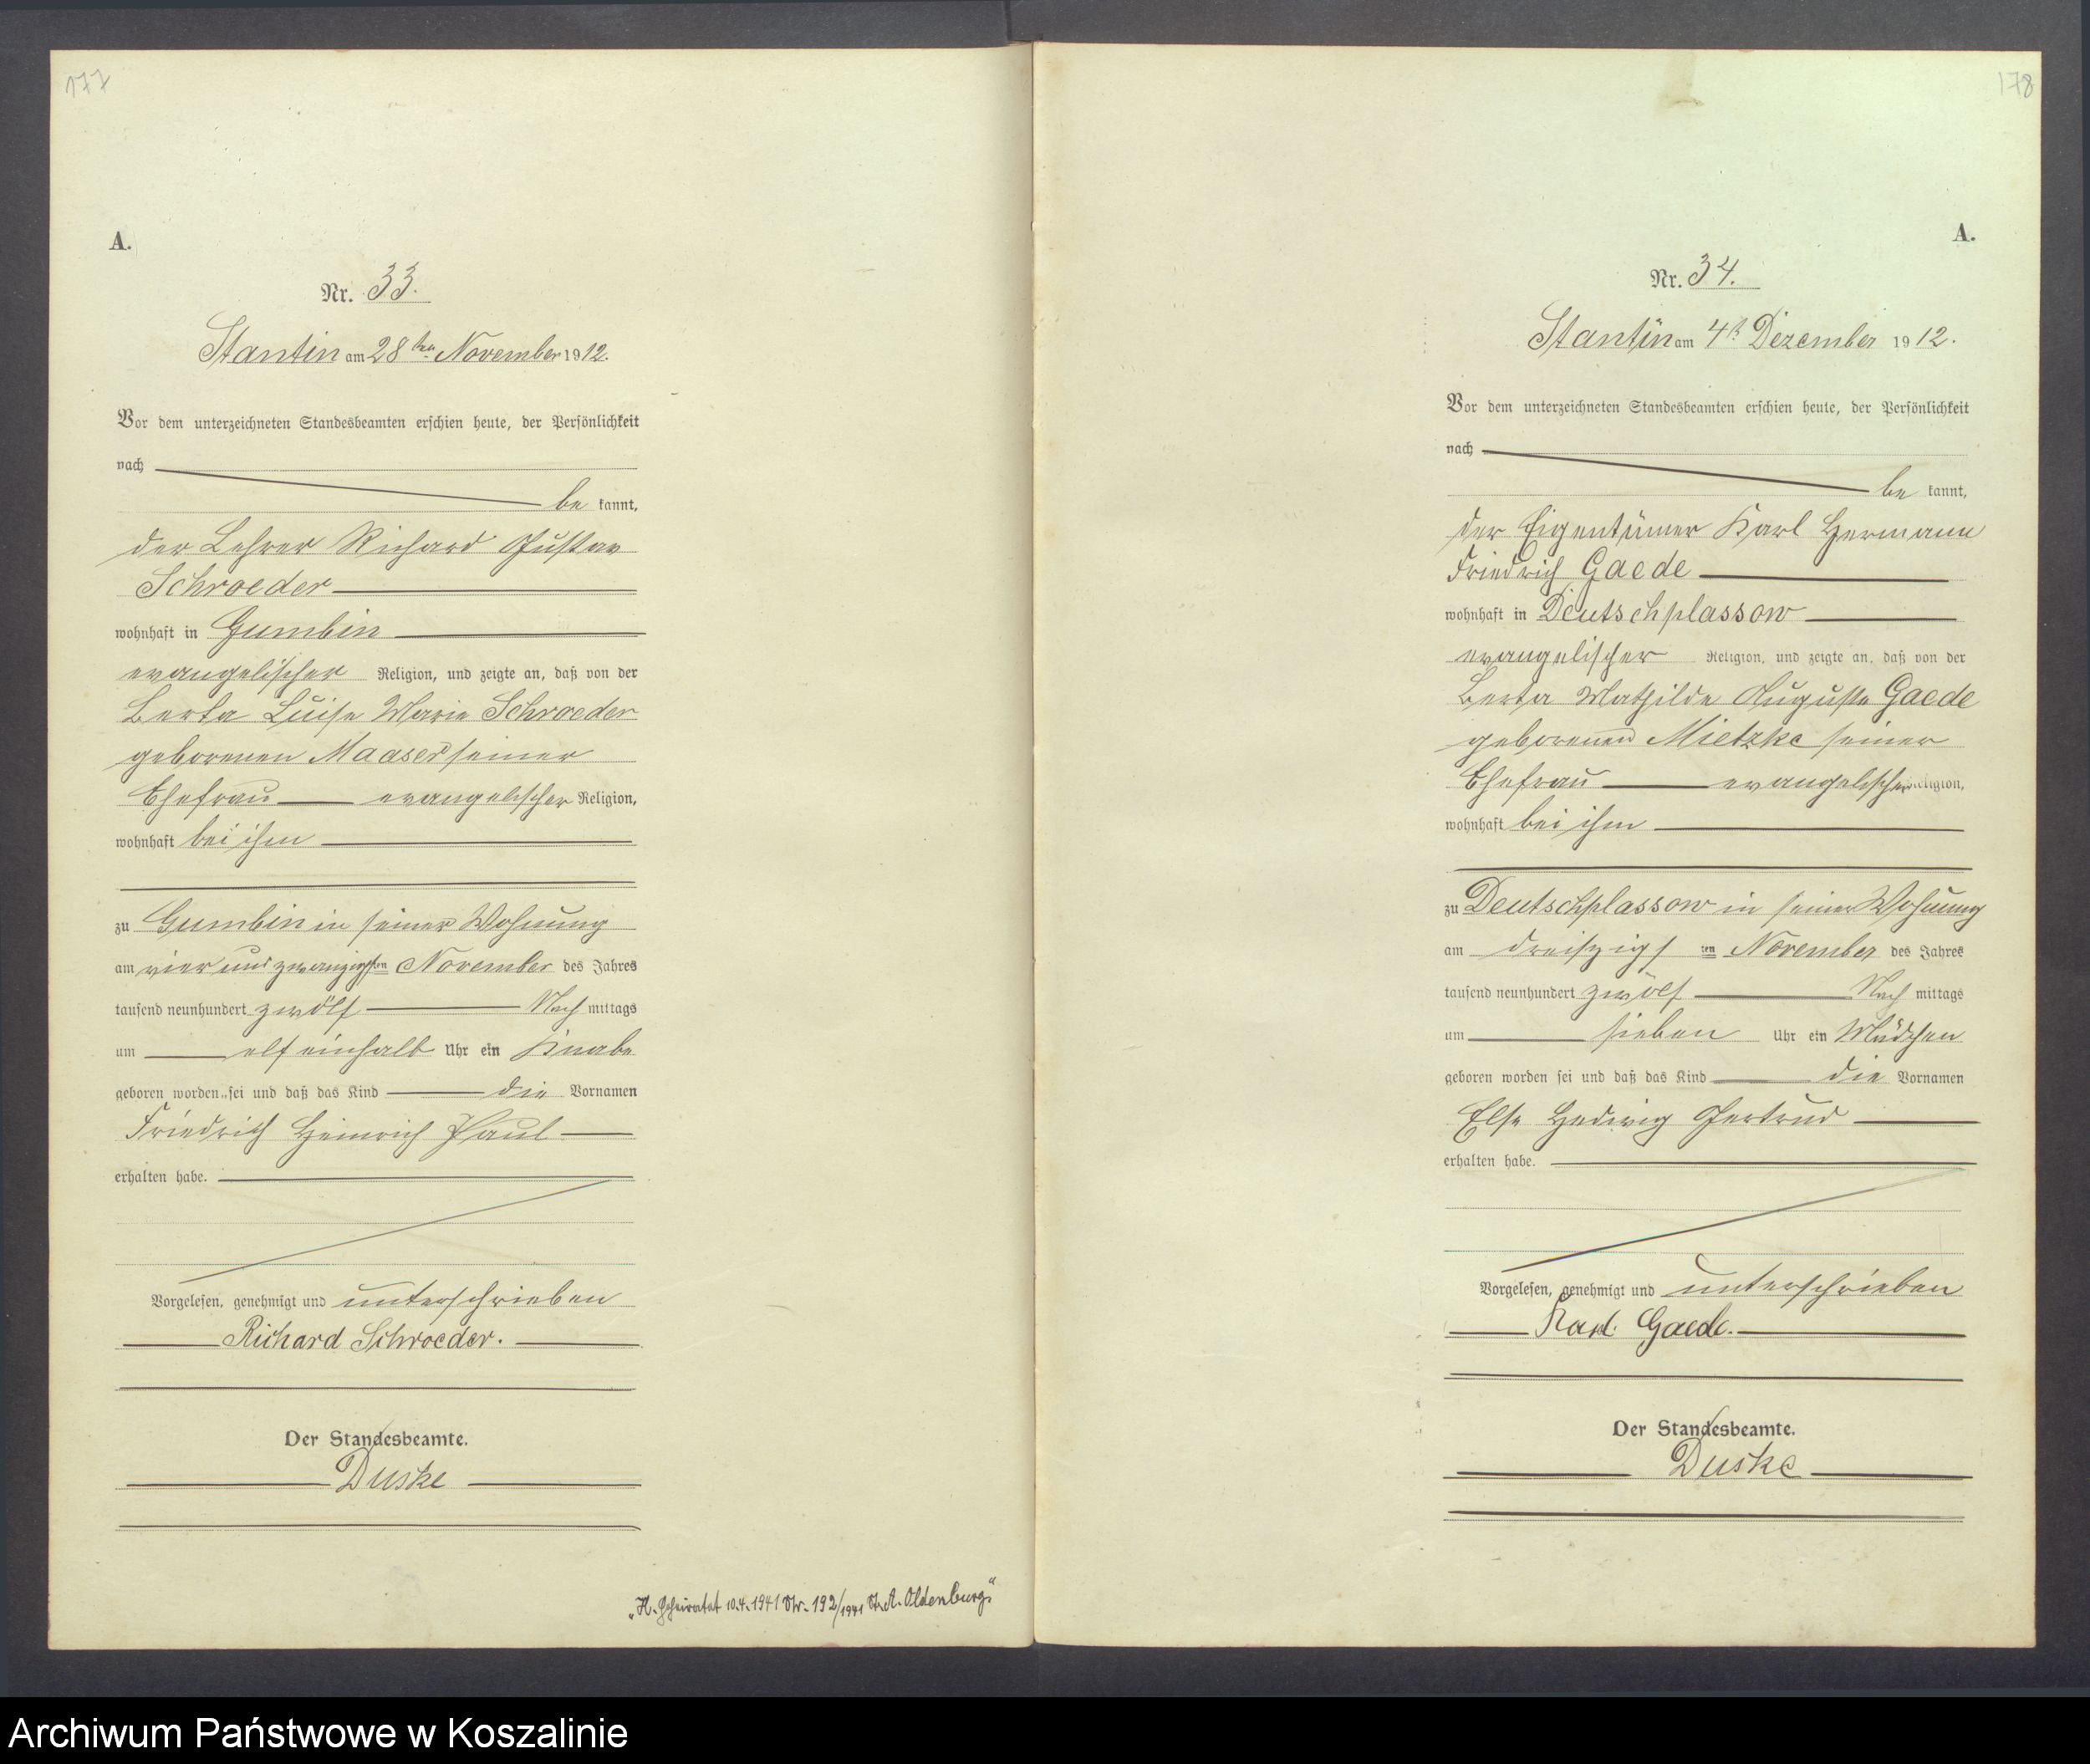 177
A.
Nr. 33.
Stantin am 28ten November 1912.
Vor dem unterzeichneten Standesbeamten erschien heute, der Persönlichkeit
nach
be kannt,
der Lehrer Richard Gustav
Schroeder
wohnhaft in Gumbin
evangelischer Religion, und zeigte an, daß von der
Berta Luise Marie Schroeder
geborenen Maaser seiner
Ehefrau evangelischer Religion,
wohnhaft bei ihm
zu Gumbin in seiner Wohnung
am vier und zwanzigsten November des Jahres
tausend neunhundert zwölf Nach mittags
um elf einhalb Uhr ein Knabe
geboren worden sei und daß das Kind die Vornamen
Friedrich Heinrich Paul
erhalten habe.
Vorgelesen, genehmigt und unterschrieben
Richard Schroeder.
Der Standesbeamte.
Duske
„H. Geheiratet 10.4.1941 Nr. 192/1941 St. A. Oldenburg."
178
A.
Nr. 34.
Stantin am 4t Dezember 1912.
Vor dem unterzeichneten Standesbeamten erschien heute, der Persönlichkeit
nach
be kannt,
der Eigentümer Karl Hermann
Friedrich Gaede
wohnhaft in Deutschplassow
evangelischer Religion, und zeigte an, daß von der
Berta Mathilde Auguste Gaede
geborenen Mietzke seiner
Ehefrau evangelischer Religion,
wohnhaft bei ihm
zu Deutschplassow in seiner Wohnung
am dreiszigs ten November des Jahres
tausend neunhundert zwölf Nach mittags
um sieben Uhr ein Mädchen
geboren worden sei und daß das Kind die Vornamen
Else Hedwig Gertrud
erhalten habe.
Vorgelesen, genehmigt und unterschrieben
Karl Gaede.
Der Standesbeamte.
Duske
Archiwum Państwowe w Koszalinie